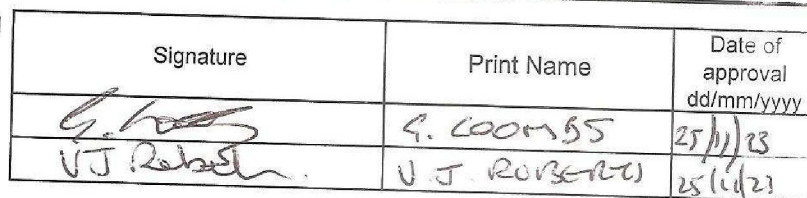 Signature Print Name Date of
approval
dd/mm/yyyy
G. Coombs G. COOMBS 25/11/23
VJ Roberts V.J. ROBERTS 25/11/23